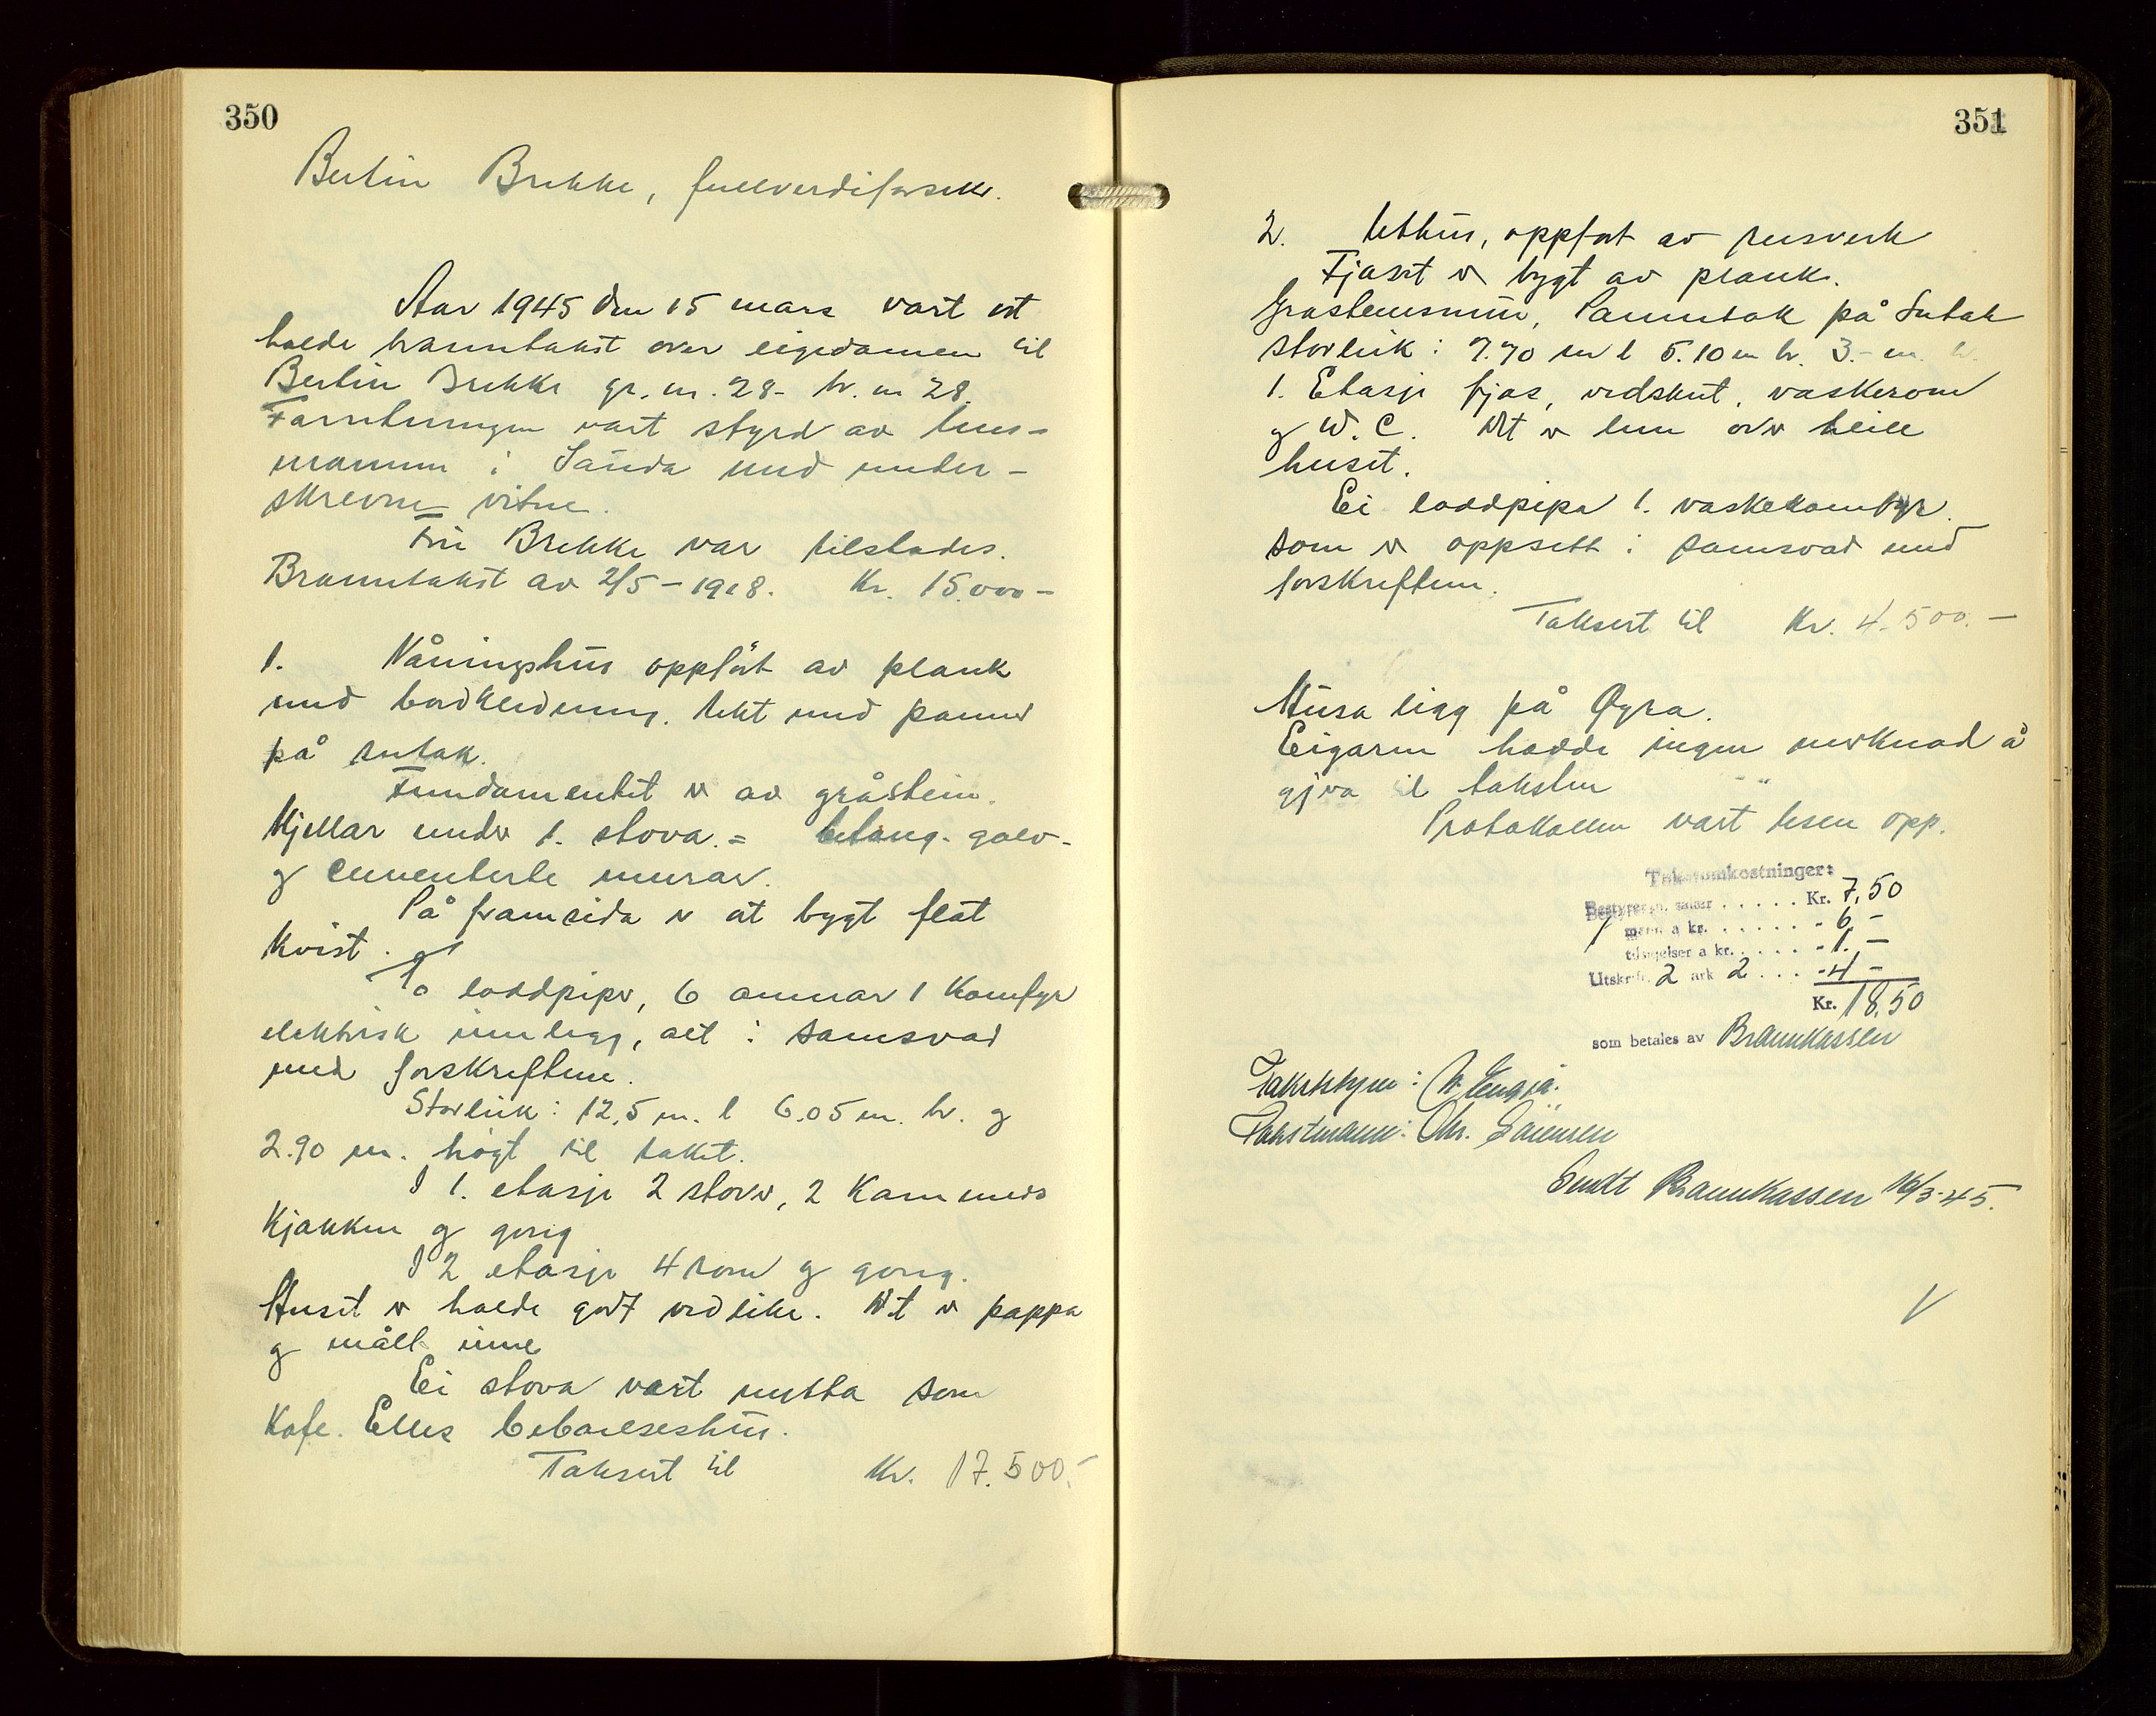 350
Bertin Brekke, fullverdiforsekr.
Aar 1945 den 15 mars vart eit
halde branntakst over eigedomen til
Bertin Brekke gr. nr. 28 - br. nr 28.
Forretningen vart styrd av lens-
mannen i Sauda med under-
skrevne vitne.
Fru Brekke var tilstades.
Branntakst av 2/5 - 1918. Kr. 15.000 -
1. Våningshus oppført av plank
med bordkledning. tekt med panner
på sutak.
Fundamentet er av gråstein.
Kjellar under 1. stova. = betong. golv-
og cementerte murar.
På framsida er at bygt flat
kvist.
To loddpiper, 6 omnar 1 Komfyr
elektrisk innlegg, alt i samsvar
med forskriftene.
Storleik: 12,5 m. l 6,05 m. br. og
2.90 m. høgt til taket.
I 1. etasje 2 stover, 2 Kammers
Kjøkken og gong
I 2 etasje 4 rom og gong.
Huset er halde godt vedlike. Det er pappa
og mållt inne
Ei stova vart nytta som
Kafe. Elles bebuelseshus.
Taksert til Kr. 17.500.-
351
2. Uthus, oppført av reisverk
Fjøset er bygt av plank.
Grasteinsmur, Panntak på Sutak
storleik: 7.70 m l 5.10 m br. 3.- m. h.
1. Etasje fjøs, vedskut, vaskerom
og W.C. Det er lem over heile
huset.
Ei loddpipe 1. vaskekomfyr
som er oppsett i samsvar med
forskriftene.
Taksert til Kr. 4.500.-
Husa ligg på Øyra.
Eigaren hadde ingen merknad å
gjeva til taksten
Protokollen vart lesen opp.
Takstomkostninger:
Bestyreren, salær ..... Kr. 7,50
1 mann a kr. ..... - 6,-
a kr. .... - 1.-
Utskrift 2 ark 2 ... - 4 -
Kr. 18,50
som betales av Brannkassen
Takststyrar: Engja.
Takstmann: Chr.
Sendt Brannkassen 16/3-45.